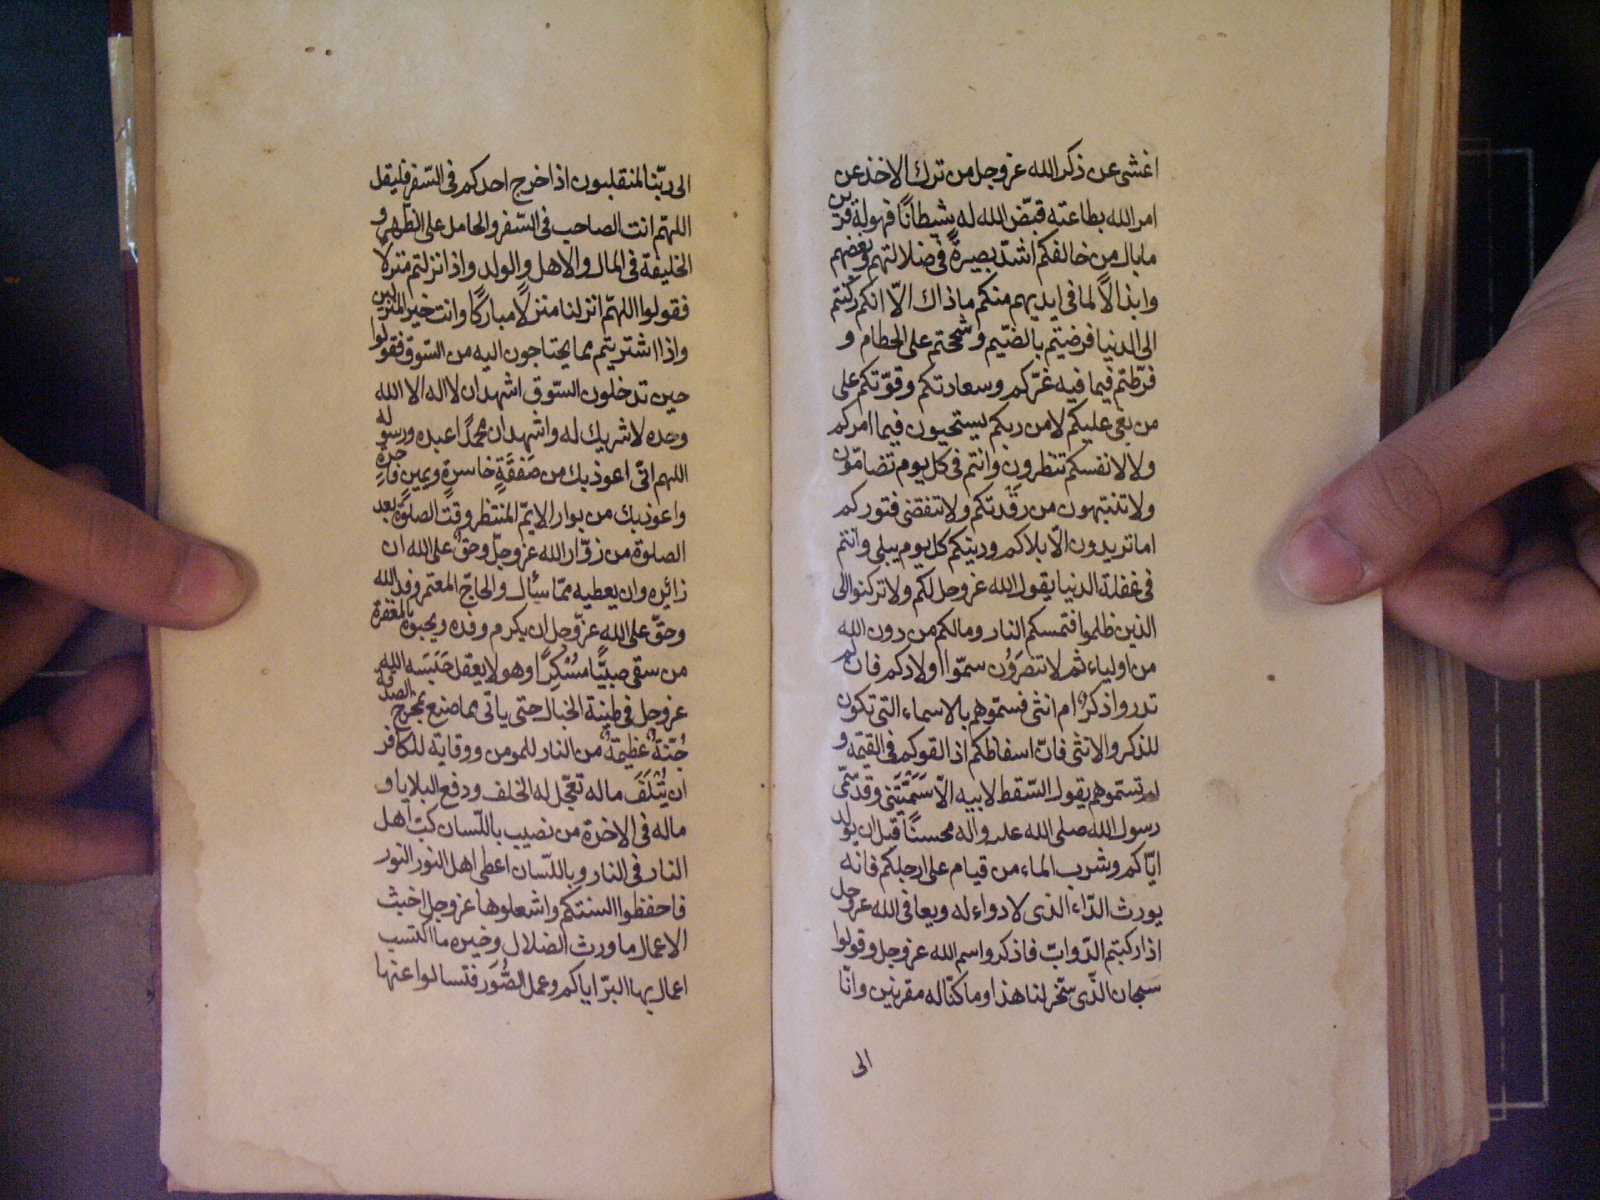 اغشى عن ذكر الله عز وجل من ترك الاخذ عن
امر الله بطاعته قبّض الله له شيطانًا فهو له قرين
ما بال من خالفكم اشدّ بصيرةً فى ضلالتهم وبعضهم
وابذالًا لما فى ايديهم منكم ما ذاك الّا انكم ركنتم
الى الدنيا فرضيتم بالضّيم وشححتم على الحطام و
فرّطتم فيما فيه عزّكم وسعادتكم وقوّتكم على
من بغى عليكم لا من ربكم يستحيون فيما امركم
ولا لانفسكم تنظرون وانتم فى كل يوم تضامّون
ولا تنتبهون من رَقْدتكم ولا تنقضى فتوركم
اما تريدون الّا بلاكم ودينكم كل يوم يبلى وانتم
فى غفلة الدنيا يقول الله عز وجل لكم ولا تركنوا الى
الذين ظلموا فتمسكم النار ومالكم من دون الله
من اولياء ثم لا تنصَرَوُن سمّوا اولادكم فان لم
تدروا ذكرٌ ام انثى فسمّوهم بالاسماء التى تكون
للذكر والانثى فانّ اسقاطكم اذا لقوكم فى القيمة و
لم تسمّوهم يقول السّقط لابيه الّا سَمَّيْتَنى وقد سمّى
رسول الله صلى الله عليه واله محسنًا قبل ان يولد
ايّاكم وشرب الماء من قيام على ارجلكم فانه
يورث الدّاء الذى لا دواء له ويعافى الله عز وجل
اذا ركبتم الدّوابّ فاذكروا اسم الله عز وجل وقولوا
سبحان الّذى سخّر لنا هذا وما كنّا له مقرنين وانّا
الى
الى ربّنا لمنقلبون اذا خرج احدكم فى السّفر فليقل
اللهمّ انت الصاحب فى السّفر والحامل على الظّهر و
الخليفة فى المال والاهل والولد واذا نزلتم منزلًا
فقولوا اللهمّ انزلنا منزلًا مباركًا وانت خير المنزلين
واذا اشتريتم ما يحتاجون اليه من السّوق فقولوا
حين تدخلون السّوق اشهد ان لا اله الا الله
وحده لا شريك له واشهد ان محمدًا عبده ورسوله
اللهم انّى اعوذ بك من صَفقَةٍ خاسرةٍ ويمينٍ فاجرة
واعوذ بك من بوار الايّم المنتظر وقت الصلوة بعد
الصلوة من زوّار الله عز وجلّ وحقّ على الله ان
زائره وان يعطيه ممّا سئال والحاجّ المعتمر وفد الله
وحقّ على الله عزّ وجل ان يكرم وفده ويحبوه بالمغفرة
من سقى صبيًّا مُسْكِرًا وهو لا يعقل حَبَسَه الله
عز وجل فى طينة الخبال حتى ياتى مما صنع بمخرج الصدقة
جُنّةٌ عظيمةٌ من النار للمومن ووقاية للكافر
ان يُتْلَفَ ماله تعجّل له الخلف ودفع البلايا و
ماله فى الاخرة من نصيب باللّسان كبّ اهل
النار فى النار وباللّسان اعطى اهل النور النور
فاحفظوا السنتكم واشعلوها عز وجل اخبث
الاعمال ما ورث الضلال وخيره ما اكتسب
اعمال بها البرّ اياكم وعمل الصُّوَر فتسالوا عنها